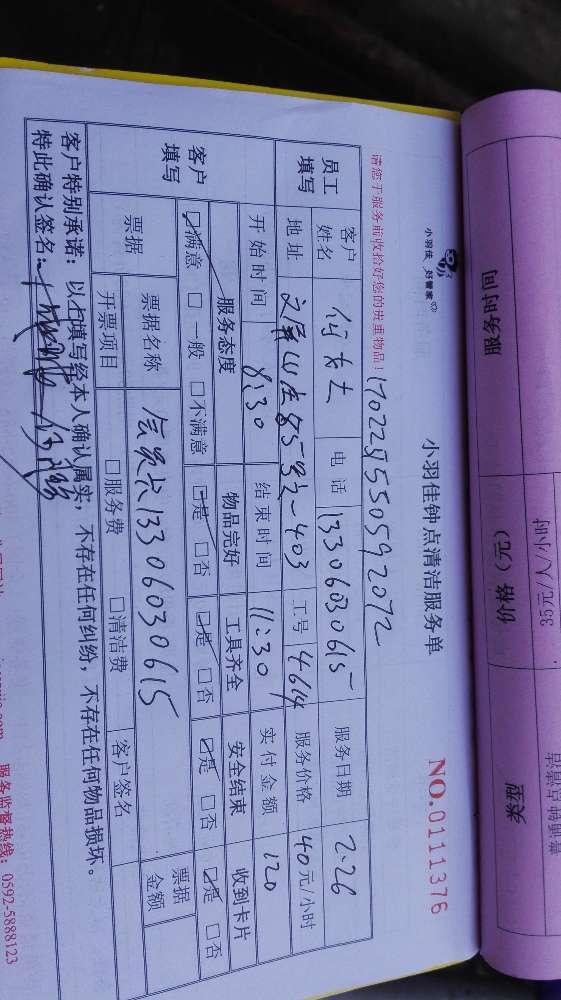 小羽佳 好管家
小羽佳钟点清洁服务单
NO.0111376
请您于服务前收拾好您的贵重物品！
17022855059 2072
员工填写
客户姓名 何女士 电话 13306030615 服务日期 2.26
地址 文屏山庄 85号之一403 工号 4614 服务价格 40元/小时
开始时间 8:30 结束时间 11:30 实付金额 120
客户填写
服务态度 物品完好 工具齐全 安全结束 收到卡片
☑满意 □一般 □不满意 ☑是 □否 ☑是 □否 ☑是 □否 ☑是 □否
票据 票据名称 会员卡13306030615 票据金额
开票项目 □服务费 □清洁费 客户签名
客户特别承诺：以上填写经本人确认属实，不存在任何纠纷，不存在任何物品损坏。
特此确认签名：
服务监督热线：0592-5888123
服务时间
价格（元）
类型
35元/人/小时